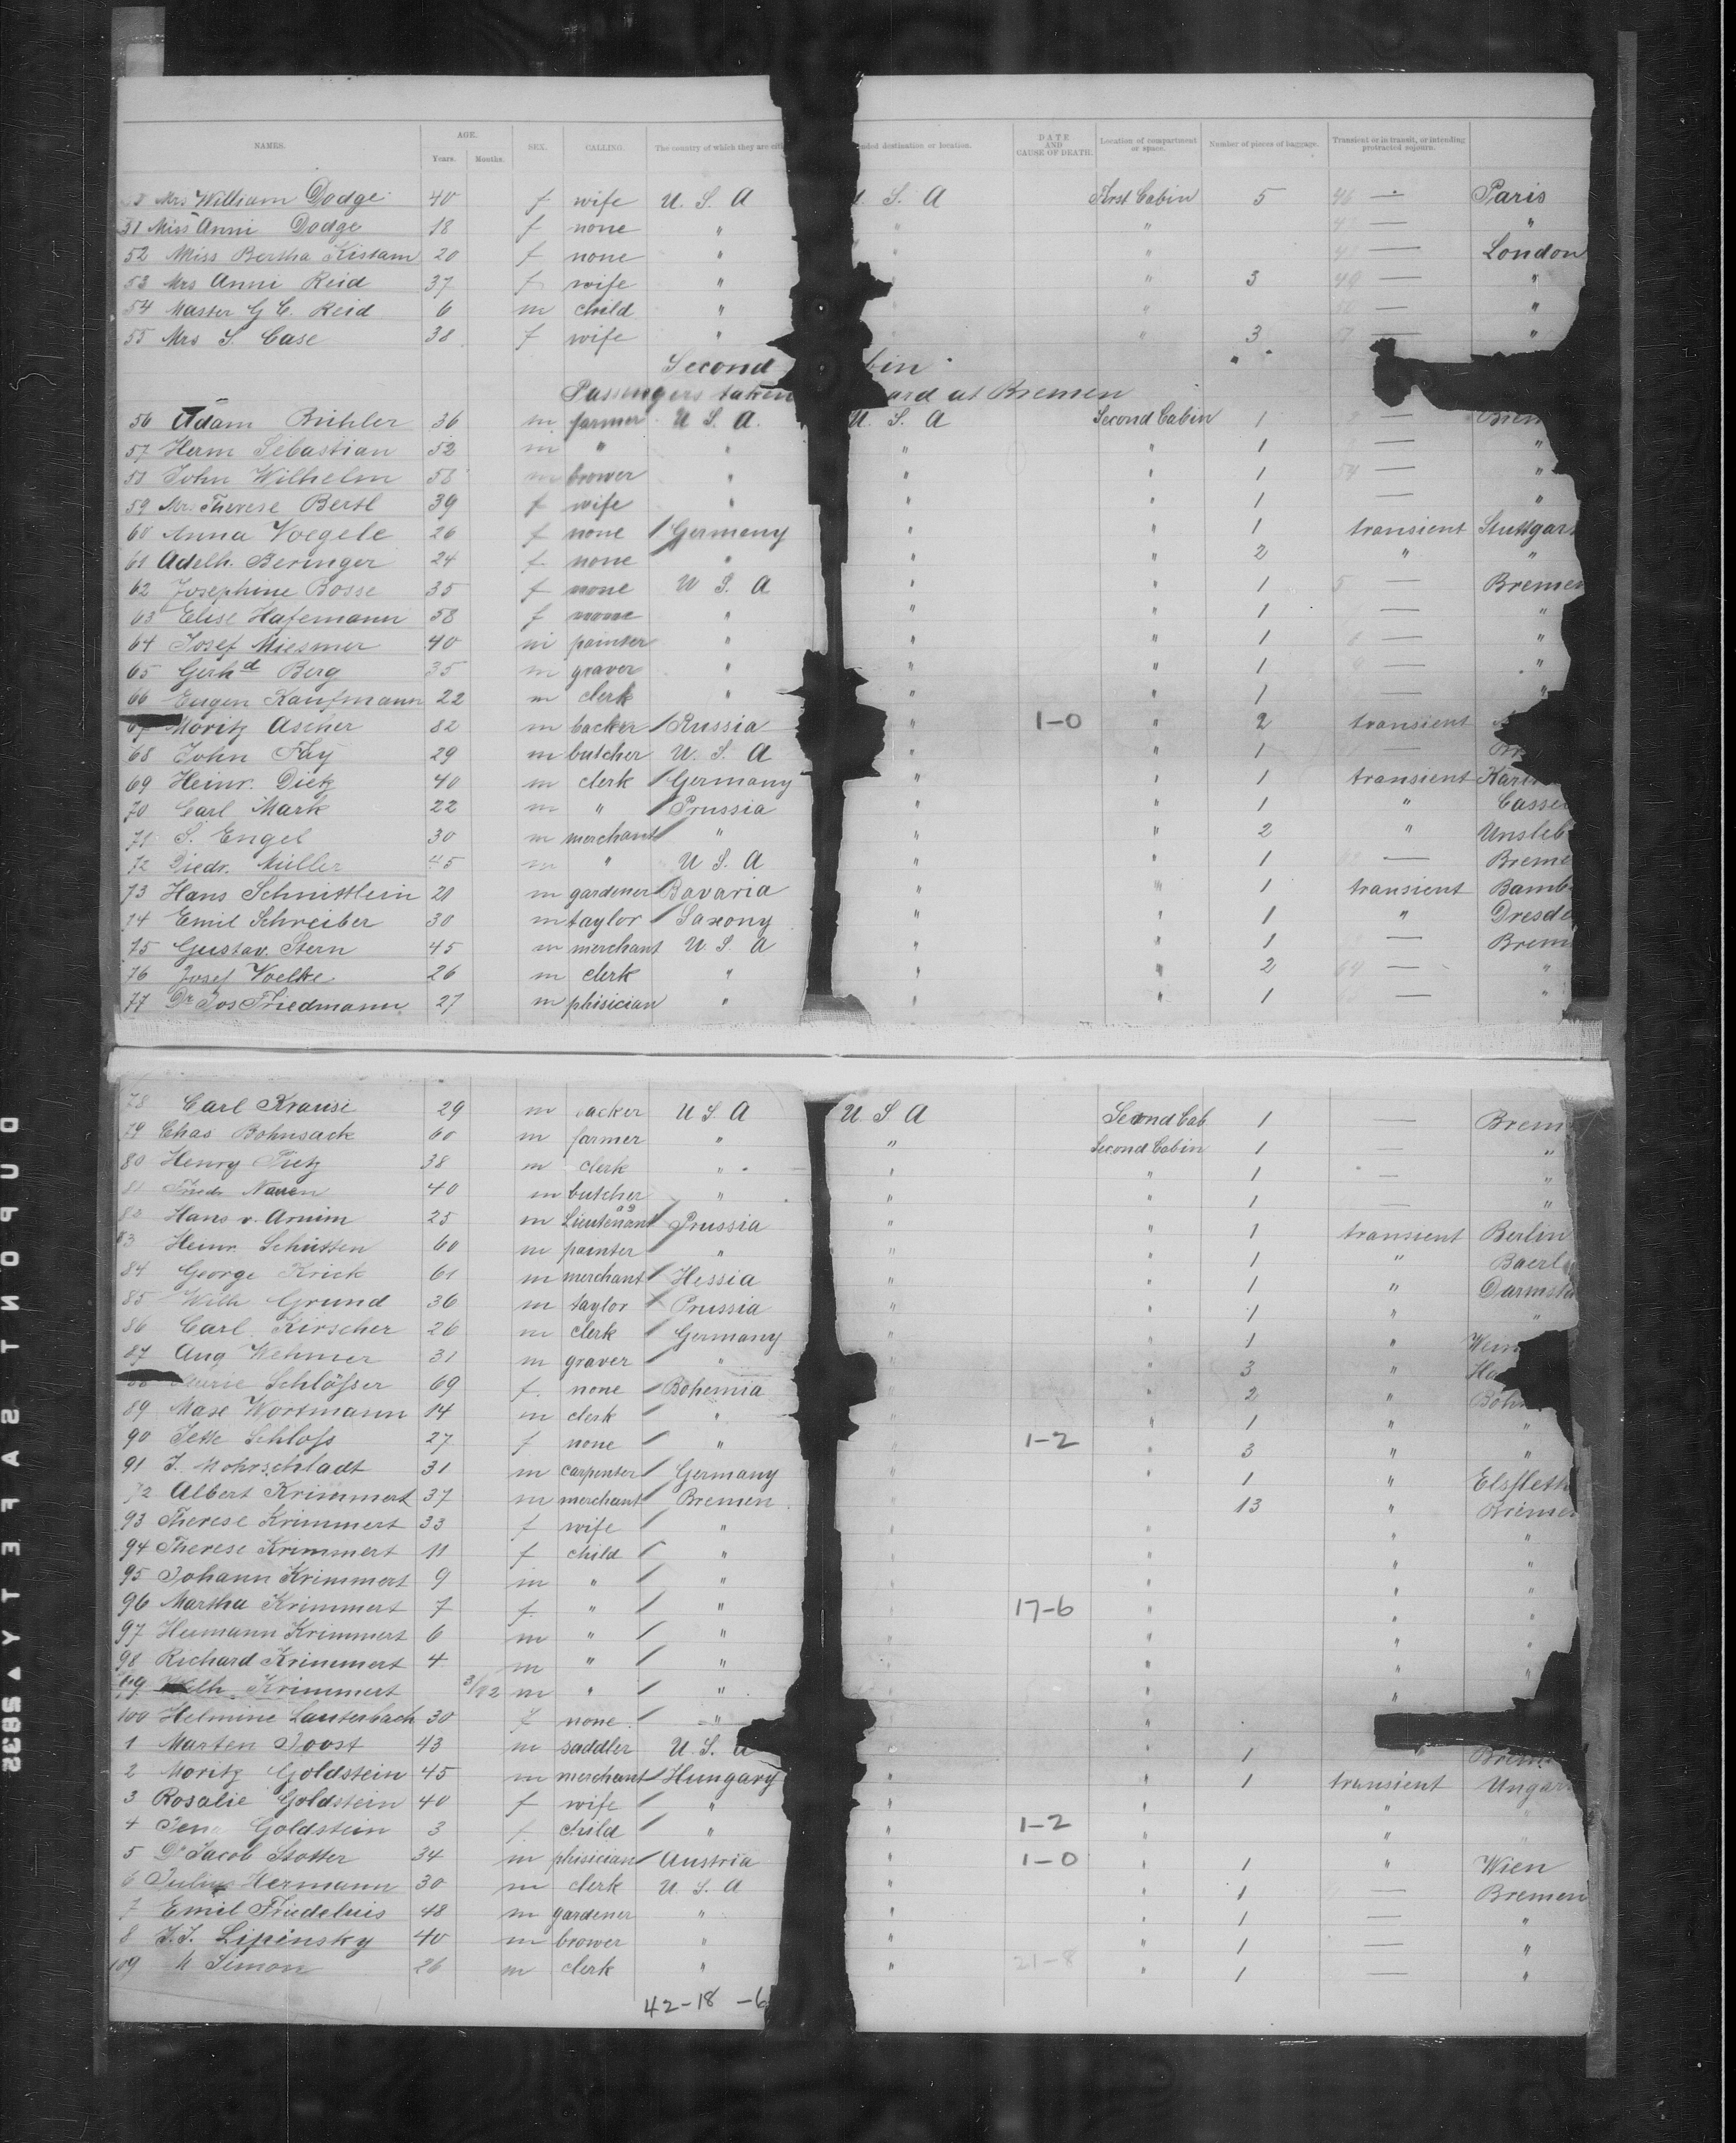 NAMES. AGE. Years. Months. SEX. CALLING. The country of which they are citi nded destination or location. DATE AND CAUSE OF DEATH. Location of compartment or space. Number of pieces of baggage. Transient or in transit, or intending protracted sojourn.
Mrs William Dodge 40 f wife U. S. A S. A First Cabin 5 46 — Paris
51 Miss Anni Dodge 18 f none " " " — "
52 Miss Bertha Kissam 20 f none " " — London
53 Mrs Anni Reid 37 f wife " " 3 49 — "
54 Master G C. Reid 6 m child " " — "
55 Mrs S. Case 38 f wife " " 3 — "
Second bin
Passengers taken ard at Bremen
56 Adam Bühler 36 m farmer U S. A. U. S. A Second Cabin 1 — Brem
57 Herm Sebastian 52 m " " " " 1 — "
58 John Wilhelm 58 m brower " " " 1 54 — "
59 Mrs. Therese Bertl 39 f wife " " " 1 — "
60 Anna Voegele 26 f none / Germany " " 1 transient Stuttgar
61 Adelh. Beringer 24 f none " " " 2 " "
62 Josephine Bosse 35 f none U S. A " " 1 — Bremen
63 Elise Hafemann 58 f none " " " 1 — "
64 Josef Miesmer 40 m painter " " " 1 — "
65 Gerhd Berg 35 m graver " " " 1 — "
66 Eugen Kaufmann 22 m clerk " " " 1 — "
67 Moritz Ascher 82 m backer / Russia " 1-0 " 2 transient
68 John Fay 29 m butcher U. S. A " " 1 — Br
69 Heinr. Dietz 40 m clerk / Germany " " 1 transient Karl
70 Carl Mark 22 m " / Prussia " " 1 " Cassel
71 S. Engel 30 m merchant / " " " 2 " Unsleb
72 Diedr. Müller 45 m " U S. A " " 1 — Breme
73 Hans Schnittlein 21 m gardener / Bavaria " " 1 transient Bamb
74 Emil Schreiber 30 m taylor / Saxony " " 1 " Dresde
75 Gustav. Stern 45 m merchant U S. A " " 1 — Brem
76 Josef Voelke 26 m clerk " " " 2 64 — "
77 Dr Jos Friedmann 27 m phisician " " " 1 — "
78 Carl Krause 29 m backer U S. A U S A Second Cab 1 — Brem
79 Chas Bohnsack 60 m farmer " " Second Cabin 1 — "
80 Henry Pietz 38 m clerk " " " 1 — "
81 Friedr Nauen 40 m butcher " " " 1 "
82 Hans v. Arnim 25 m Lieutenant / Prussia " " 1 transient Berlin
83 Heinr. Schütten 60 m painter / " " " 1 " Baerl
84 George Krick 61 m merchant / Hessia " " 1 " Darmsta
85 Wilh Grund 36 m taylor / Prussia " " 1 " "
86 Carl Kirscher 26 m clerk / Germany " 1 " Wein
87 Aug Wehmer 31 m graver / " " 3 " Ha
Marie Schlösser 69 f. none / Bohemia " 2 " Böhm
89 Max Wortmann 14 m clerk / " " " 1 " "
90 Jette Schloss 27 f none / " " 1-2 " 3 " "
91 J. Mohrschladt 31 m carpenter / Germany " " 1 " Elsfleth
92 Albert Krimmert 37 m merchant / Bremen " 13 " Bremen
93 Therese Krimmert 33 f wife / " " " " "
94 Therese Krimmert 11 f child / " " " " "
95 Johann Krimmert 9 m " / " " " " "
96 Martha Krimmert 7 f. " / " " 17-6 " " "
97 Hermann Krimmert 6 m " / " " " " "
98 Richard Krimmert 4 m " / " " " " "
99 Wilh. Krimmert 3/12 m " / " " " "
100 Helmine Lauterbach 30 f none / " "
1 Marten Joost 43 m saddler U. S. A " " 1 Brem
2 Moritz Goldstein 45 m merchant / Hungary " " 1 transient Ungar
3 Rosalie Goldstein 40 f wife / " " " "
4 Goldstein 3 f child / " " 1-2 " "
5 Dr Jacob Stotter 34 m phisician / Austria " 1-0 " 1 " Wien
6 Julius Hermann 30 m clerk U. S. A " " 1 — Bremen
7 Emil Friedelius 48 m gardener " " " 1 — "
8 J. J. Lipinsky 40 m brower " " " 1 — "
109 Simon 26 m clerk " " 21-8 " 1 — "
42-18 -6
DUPONT SAFETY 2835